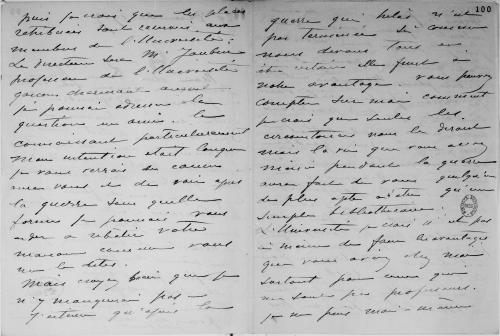 puis je crois que les places
rétribuées sont réservées aux
membres de l'Université;
Le directeur sera M. Joubin
professeur de l'Université
je pourrais adresser la
question un ami le
connaissant particulièrement
Mon intention était lorsque
je vous verrais de causer
avec vous et de voir après
la guerre sous quelle
forme je pourrais vous
aider à rebâtir votre
maison comme vous
me le dites.
Mais croyez bien que je
n'y manquerai pas —
J'estime qu'après la
100
guerre qui, hélas n'est
pas terminée
nous devons tous en
être certains elle finit à
notre avantage. vous pouvez
compter sur moi comment
je crois que seules les
circonstances nous le diront
mais la vie que vous avez
menée pendant la guerre
aura fait de vous quelqu'un
de plus apte à être qu'un
simple bibliothécaire!
L'Université je crois n'est pas
à même de faire les avantages
que vous avez chez moi
surtout pour ceux qui
ne sont pas professeurs.
je ne puis moi-même